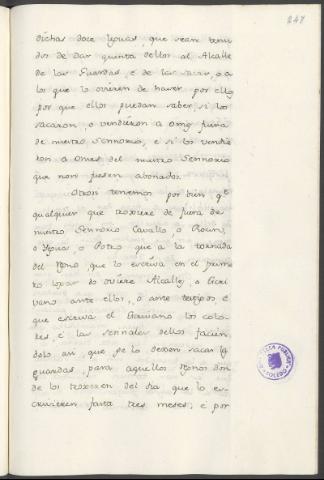 247
dichas doce leguas, que sean tenu
dos de dar quenta dellos al Alcalle
de las Guardas, e de las sacas, o a
los que lo ovieren de haver por ellos
por que ellos puedan saber si los
sacaron, o vendieron a omes fuera
de nuestro Sennorio, e si los vendie
ron a omes del nuestro Sennorio
que non fuesen abonados.
Otrosi tenemos por bien, qe
qualquier que troxiere de fuera de
nuestro Sennorio Cavallo, o Rocin,
o Yegua, o Potro que a la tornada
del Regno, que lo escriva en el prime
ro logar do oviere Alcalles, o Escri
vano ante ellos, o ante testigos, e
que escriva el Escrivano los colo
res, e las sennales dellos facien
dolo asi, que ge lo dexen sacar las
guardas, para aquellos Regnos don
de los troxeren del dia que lo es-
crivieren fasta tres meses; e por
TOLEDO